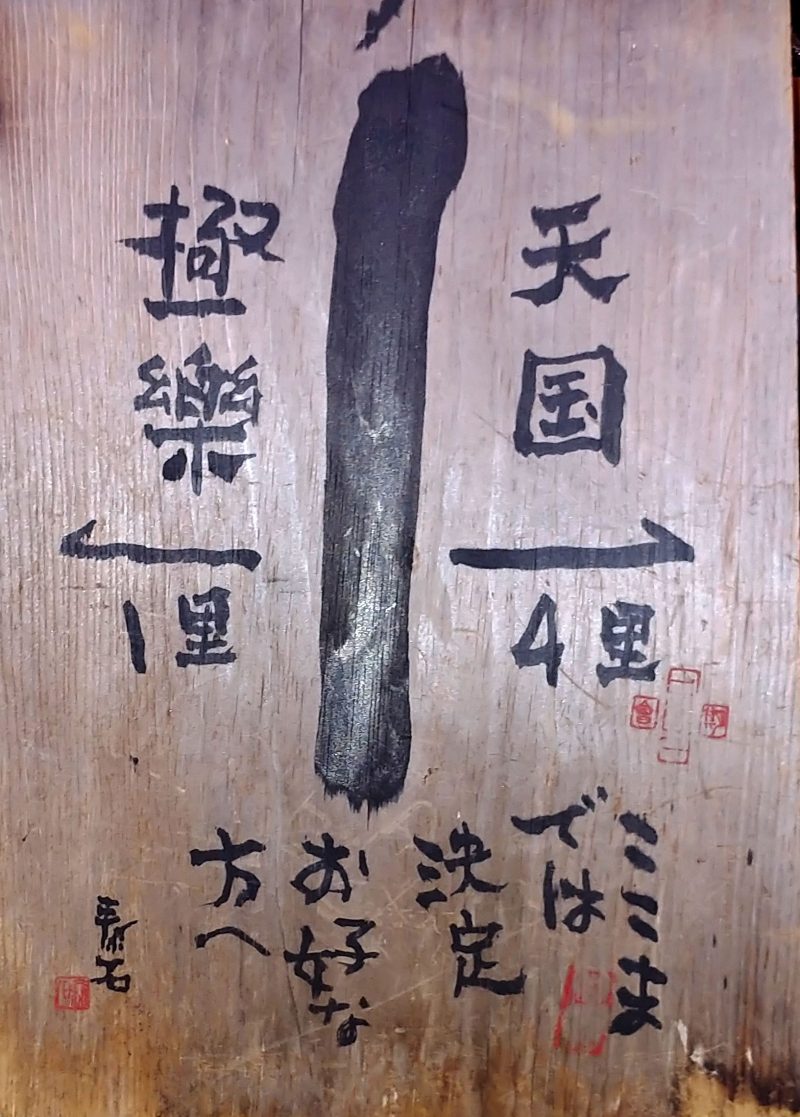 天国
4里
極樂
1里
ここま
では
決定
お好な
方へ